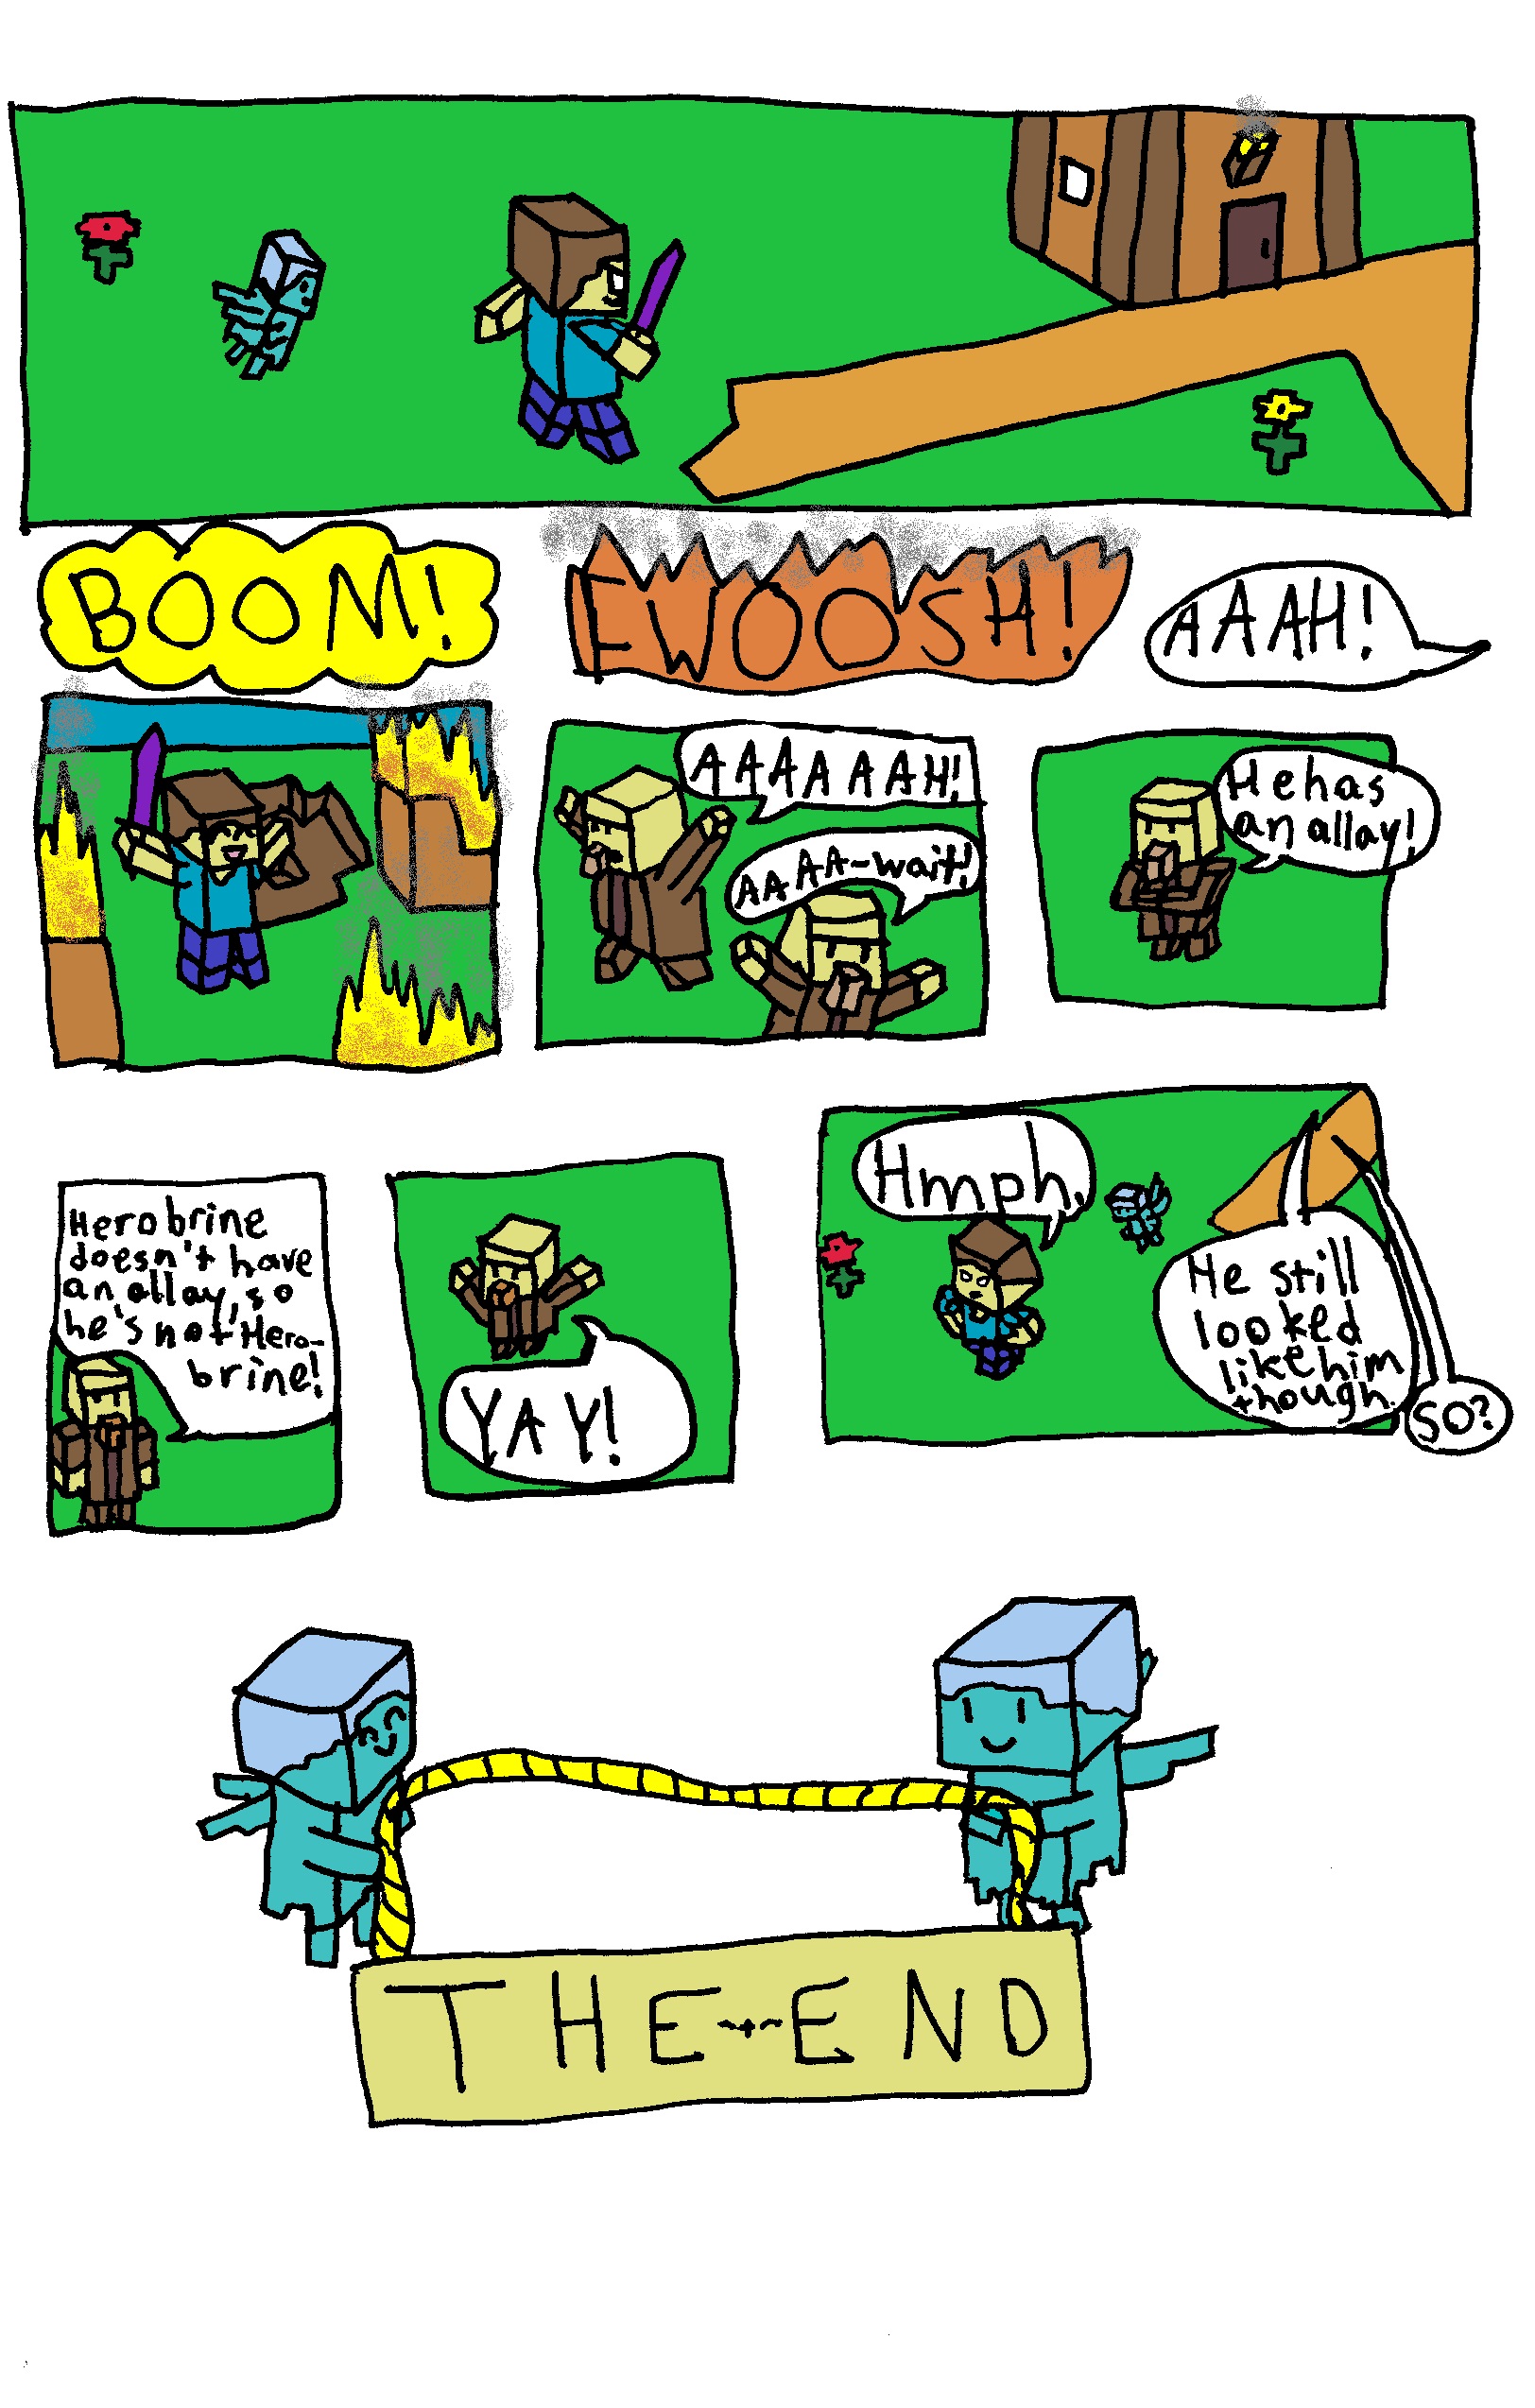 BOOM!
FWOOSH!
AAAH!
AAAAAAH!
AAAA-wait!
He has
an allay!
Herobrine
doesn't have
an allay, so
he's not Hero-
brine!
YAY!
Hmph.
He still
looked
like him
though.
SO?
THE END